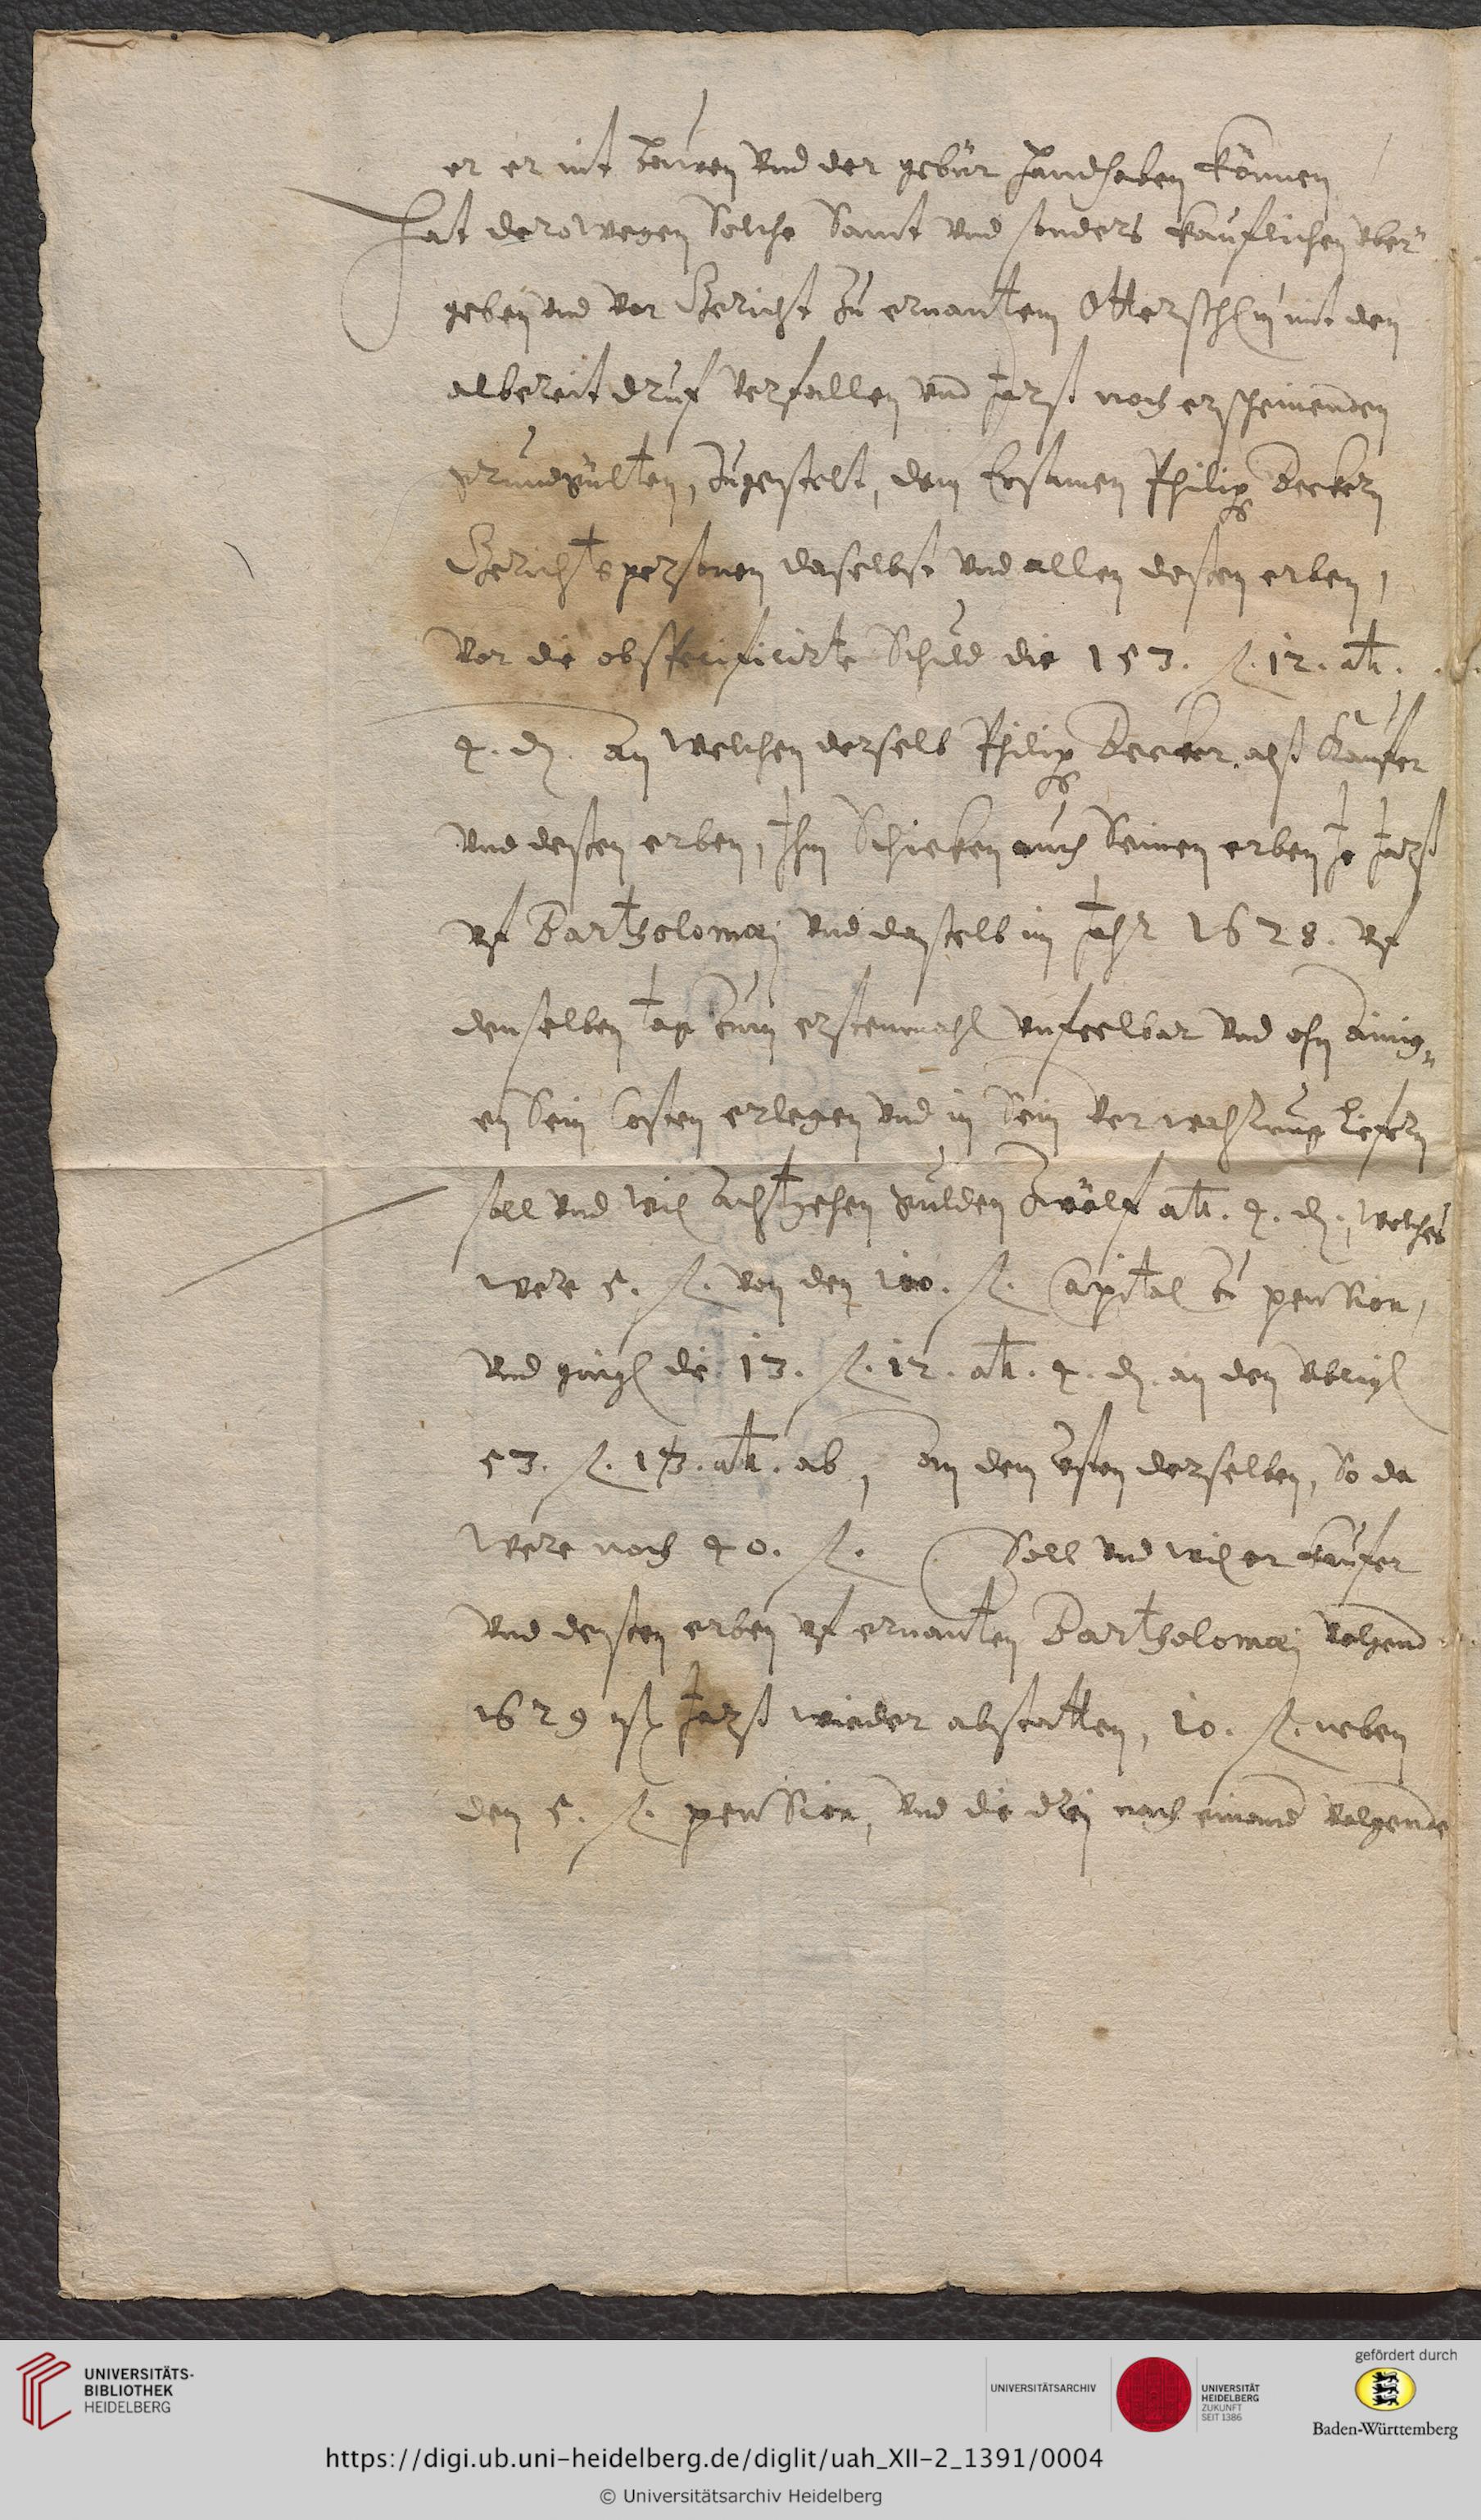 er er nit bauen vnd der gebür handhaben können
Hat derowegen Solche Samt vnd sonders kauflichen vber
geben vnd vor Gericht zu ernantem Ottersch mit den
albereit druf verfallen vnd Jarst noch erscheinenden
grundgülten, zugestelt, dem Ersamen Philips Becker
Gerichtspersonen daselbst vnd allen dessen erben,
Vor die obspecificirte Schuld die 153. fl. 12. alb.
4. d. An welchen derselb Philips Becker als Käufer
vnd dessen erben, Ihm Schicken auch Seinen erben Je Jarst
vf Bartholomaj vnd dasselb im Jahr 1628. vf
denselben tag zum erstenmahl vnfeelbar vnd ohn einig„
en Sein Costen erlegen vnd in Sein verwahrung liefern
soll vnd wil Achtzehen gulden Zwölf alb. 4. d., welches
were 5. fl. von den 100. fl. Capital zu pension,
vnd gingen die 13. fl. 12. alb. 4. d. an den vbrigen
53. fl. 13. alb. ab, An dem resten derselben, So da
were noch 40. fl. Soll vnd wil er käufer
vnd dessen erben vf ernanten Bartholomaj volgend
1629 Jarst wieder abstatten, 10. fl. neben
den 5. fl. pension, vnd die drei nach einand volgende
UNIVERSITÄTS-
BIBLIOTHEK
HEIDELBERG
UNIVERSITÄTSARCHIV
UNIVERSITÄT
HEIDELBERG
ZUKUNFT
SEIT 1386
gefördert durch
Baden-Württemberg
https://digi.ub.uni-heidelberg.de/diglit/uah_XII-2_1391/0004
© Universitätsarchiv Heidelberg